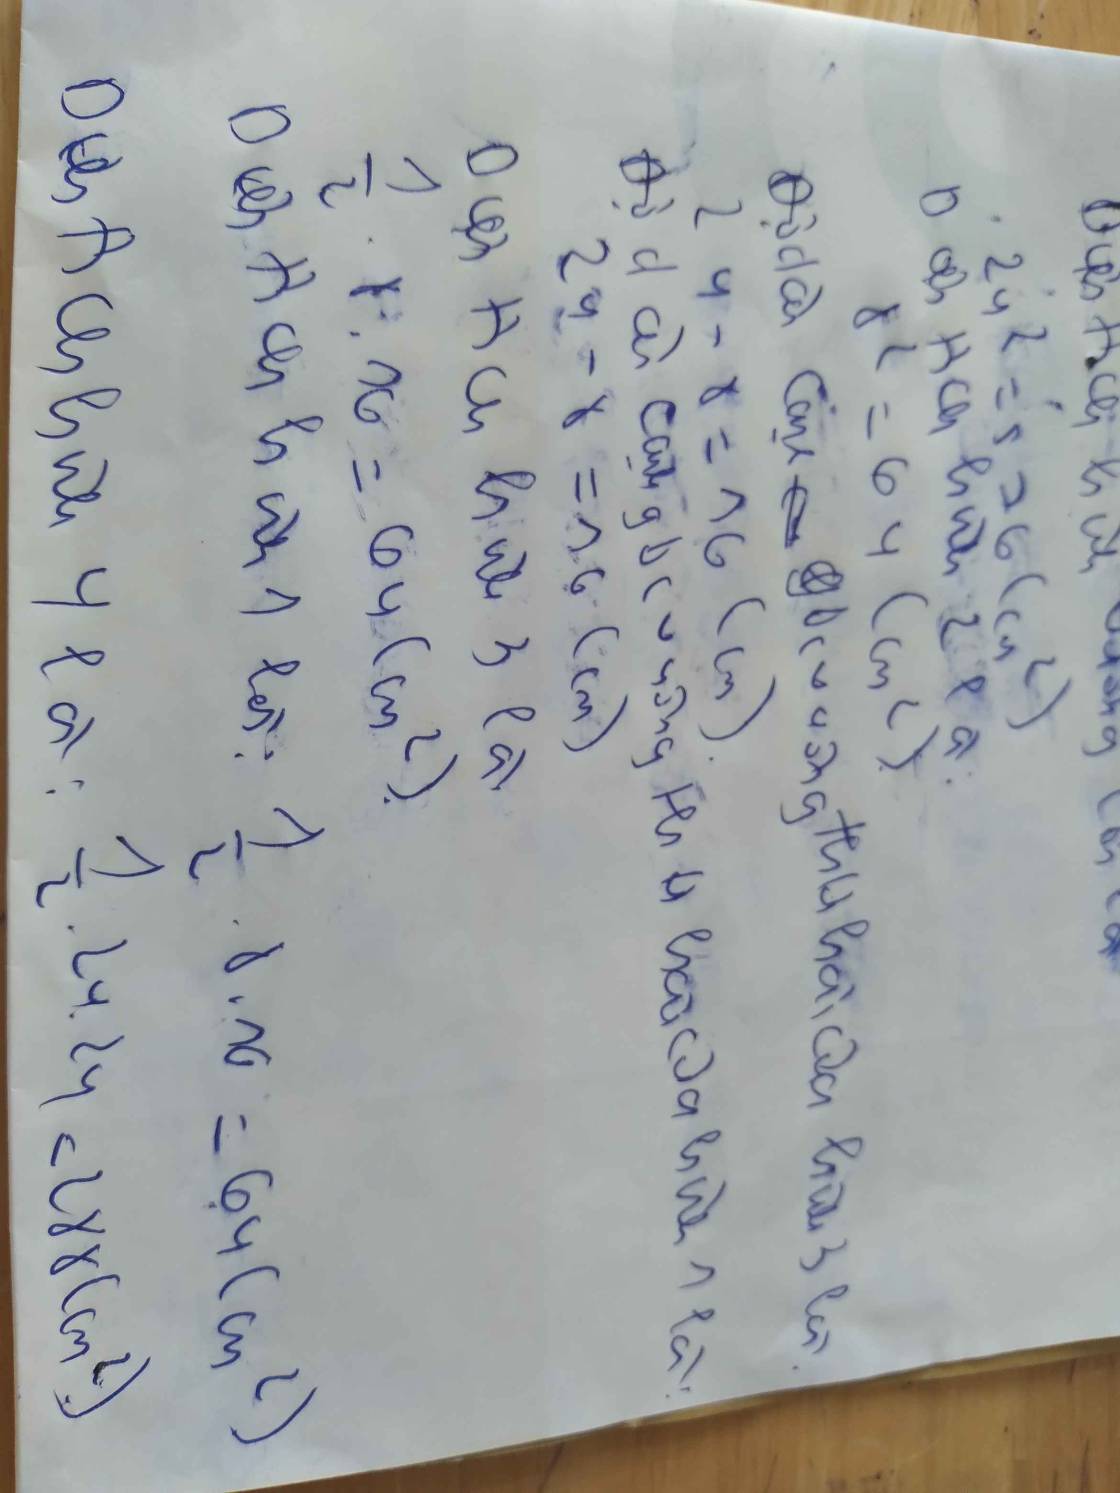 Diện tích hình vuông lớn là
24² = 576 (cm²)
Diện tích hình 2 là:
8² = 64 (cm²)
Độ dài cạnh góc vuông thứ hai của hình 3 là:
24 - 8 = 16 (cm).
Độ dài cạnh góc vuông thứ hai của hình 1 là:
24 - 8 = 16 (cm)
Diện tích hình 3 là
1/2 . 8 . 16 = 64 (cm²).
Diện tích hình 1 là: 1/2 . 8 . 16 = 64 (cm²)
Diện tích hình 4 là: 1/2 . 24 . 24 = 288 (cm²)